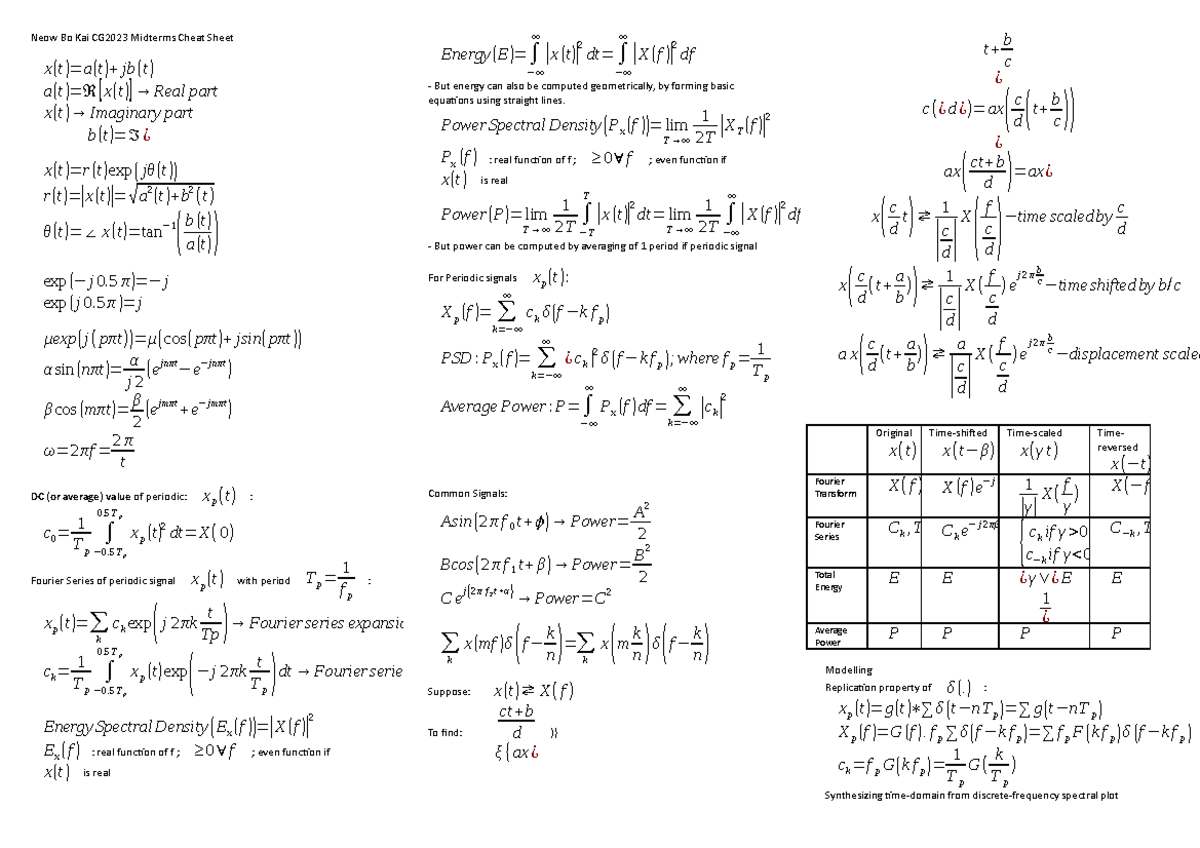 Neow Bo Kai CG2023 Midterms Cheat Sheet
x(t)=a(t)+jb(t)
a(t)=ℜ[x(t)]→Real part
x(t)→Imaginary part
b(t)=ℑ¿
x(t)=r(t)exp(jθ(t))
r(t)=|x(t)|=√(a²(t)+b²(t))
θ(t)=∠x(t)=tan⁻¹(b(t)/a(t))
exp(−j0.5π)=−j
exp(j0.5π)=j
μexp(j(pπt))=μ(cos(pπt)+jsin(pπt))
αsin(nπt)=α/j2(e^{jnπt}−e^{−jnπt})
βcos(mπt)=β/2(e^{jmπt}+e^{−jmπt})
ω=2πf=2π/t
DC (or average) value of periodic: x_p(t) :
c_0=1/T_p ∫_{−0.5T_p}^{0.5T_p} x_p(t)² dt=X(0)
Fourier Series of periodic signal x_p(t) with period T_p=1/f_p :
x_p(t)=∑_k c_k exp(j2πk t/Tp)→Fourier series expansic
c_k=1/T_p ∫_{−0.5T_p}^{0.5T_p} x_p(t)exp(−j2πk t/T_p)dt→Fourier serie
Energy Spectral Density(E_x(f))=|X(f)|²
E_x(f) : real function of f ; ≥0∀f ; even function if
x(t) is real
Energy(E)=∫_{−∞}^{∞}|x(t)|²dt=∫_{−∞}^{∞}|X(f)|²df
- But energy can also be computed geometrically, by forming basic
equations using straight lines.
Power Spectral Density(P_x(f))=lim_{T→∞} 1/2T |X_T(f)|²
P_x(f) : real function of f ; ≥0∀f ; even function if
x(t) is real
Power(P)=lim_{T→∞} 1/2T ∫_{−T}^{T}|x(t)|²dt=lim_{T→∞} 1/2T ∫_{−∞}^{∞}|X(f)|²df
- But power can be computed by averaging of 1 period if periodic signal
For Periodic signals x_p(t):
X_p(f)=∑_{k=−∞}^{∞} c_k δ(f−kf_p)
PSD: P_x(f)=∑_{k=−∞}^{∞} ¿c_k|²δ(f−kf_p); where f_p=1/T_p
Average Power: P=∫_{−∞}^{∞}P_x(f)df=∑_{k=−∞}^{∞}|c_k|²
Common Signals:
Asin(2πf_0t+ϕ)→Power=A²/2
Bcos(2πf_1t+β)→Power=B²/2
Ce^{j(2πf_2t+α)}→Power=C²
∑_k x(mf)δ(f−k/n)=∑_k x(m k/n)δ(f−k/n)
Suppose: x(t)⇄X(f)
To find: (ct+b)/d )}
ξ{ax¿
t+b/c
¿
c(¿d¿)=ax(c/d(t+b/c))
¿
ax((ct+b)/d)=ax¿
x(c/d t)⇄1/|c/d| X(f/(c/d))−time scaled by c/d
x(c/d(t+a/b))⇄1/|c/d| X(f/(c/d))e^{j2π b/c}−time shifted by b/c
ax(c/d(t+a/b))⇄a/|c/d| X(f/(c/d))e^{j2π b/c}−displacement scale
Original x(t) Time-shifted x(t−β) Time-scaled x(γt) Time-reversed x(−t)
Fourier Transform X(f) X(f)e^{−j 1/|γ| X(f/γ) X(−f
Fourier Series C_k,T C_k e^{−j2π {c_k if γ>0 c_{−k} if γ<0 C_{−k},T
Total Energy E E ¿γ∨¿E 1/¿ E
Average Power P P P P
Modelling
Replication property of δ(.) :
x_p(t)=g(t)*∑δ(t−nT_p)=∑g(t−nT_p)
X_p(f)=G(f).f_p∑δ(f−kf_p)=∑f_pF(kf_p)δ(f−kf_p)
c_k=f_pG(kf_p)=1/T_p G(k/T_p)
Synthesizing time-domain from discrete-frequency spectral plot